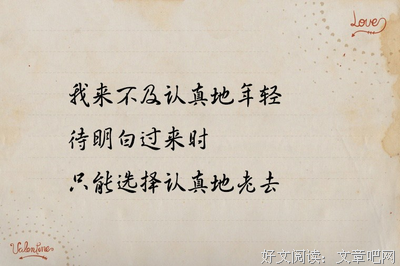 Love
我来不及认真地年轻
待明白过来时
只能选择认真地老去
Valentine
好文阅读：文章吧网